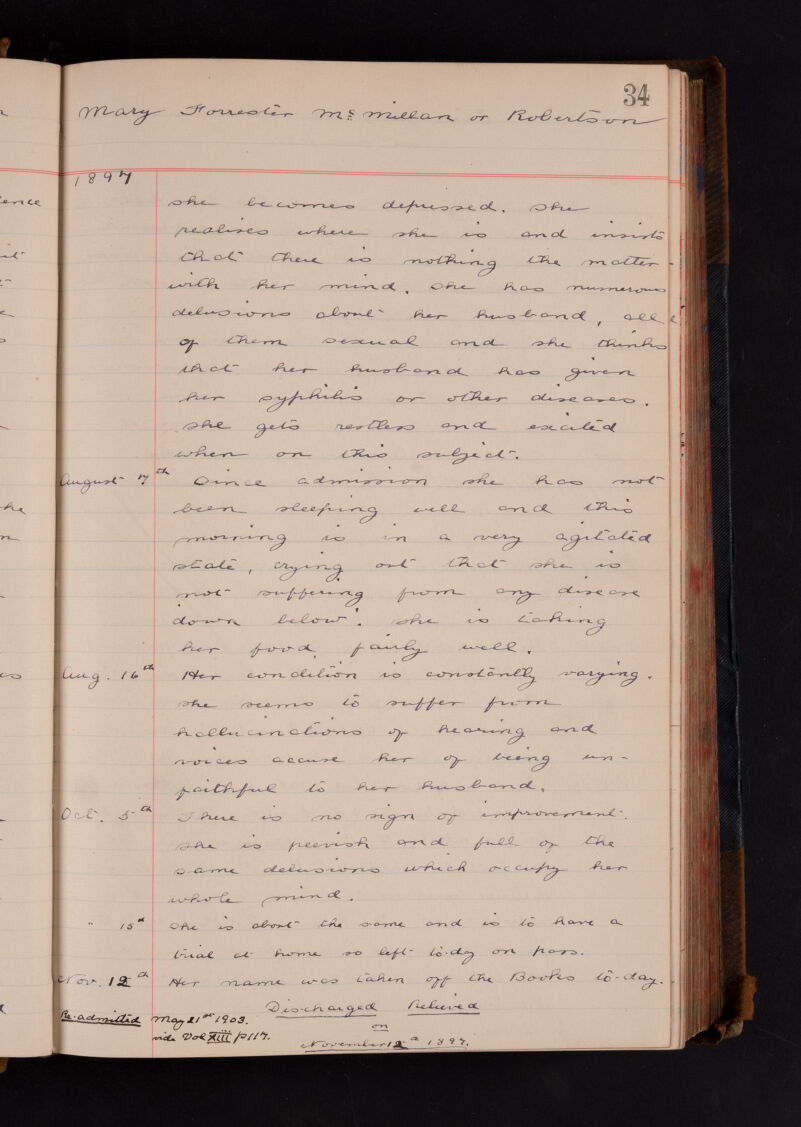 34
Mary Forrester Mc Millan or Robertson
1897
she becomes depressed. She
realises where she is and insists
that there is nothing the matter
with her mind. She has numerous
delusions about her husband, all
of them sexual and she thinks
that her husband has given
her syphilis or other diseases.
She gets restless and excited
when on this subject.
August 7th Since admission she has not
been sleeping well and this
morning is in a very agitated
state, crying out that she is
not suffering from any disease
down below". She is taking
her food fairly well.
Aug. 16th Her condition is constantly varying.
She seems to suffer from
hallucinations of hearing and
voices accuse her of being un-
faithful to her husband.
Oct. 5th There is no sign of improvement.
She is peevish and full of the
same delusions which occupy her
whole mind.
" 15th She is about the same and is to have a
trial at home so left to-day on pass.
Nov. 12th Her name was taken off the Books to-day.
Discharged Relieved
on
November 12th 1897.
Re-admitted May 21st 1903.
vide Vol XIII p117.